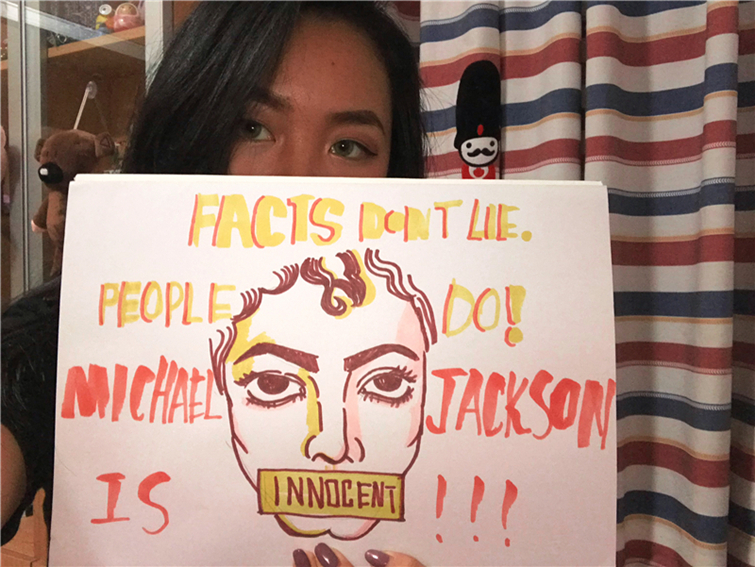 FACTS DON'T LIE.
PEOPLE DO!
MICHAEL JACKSON
IS !!!
INNOCENT